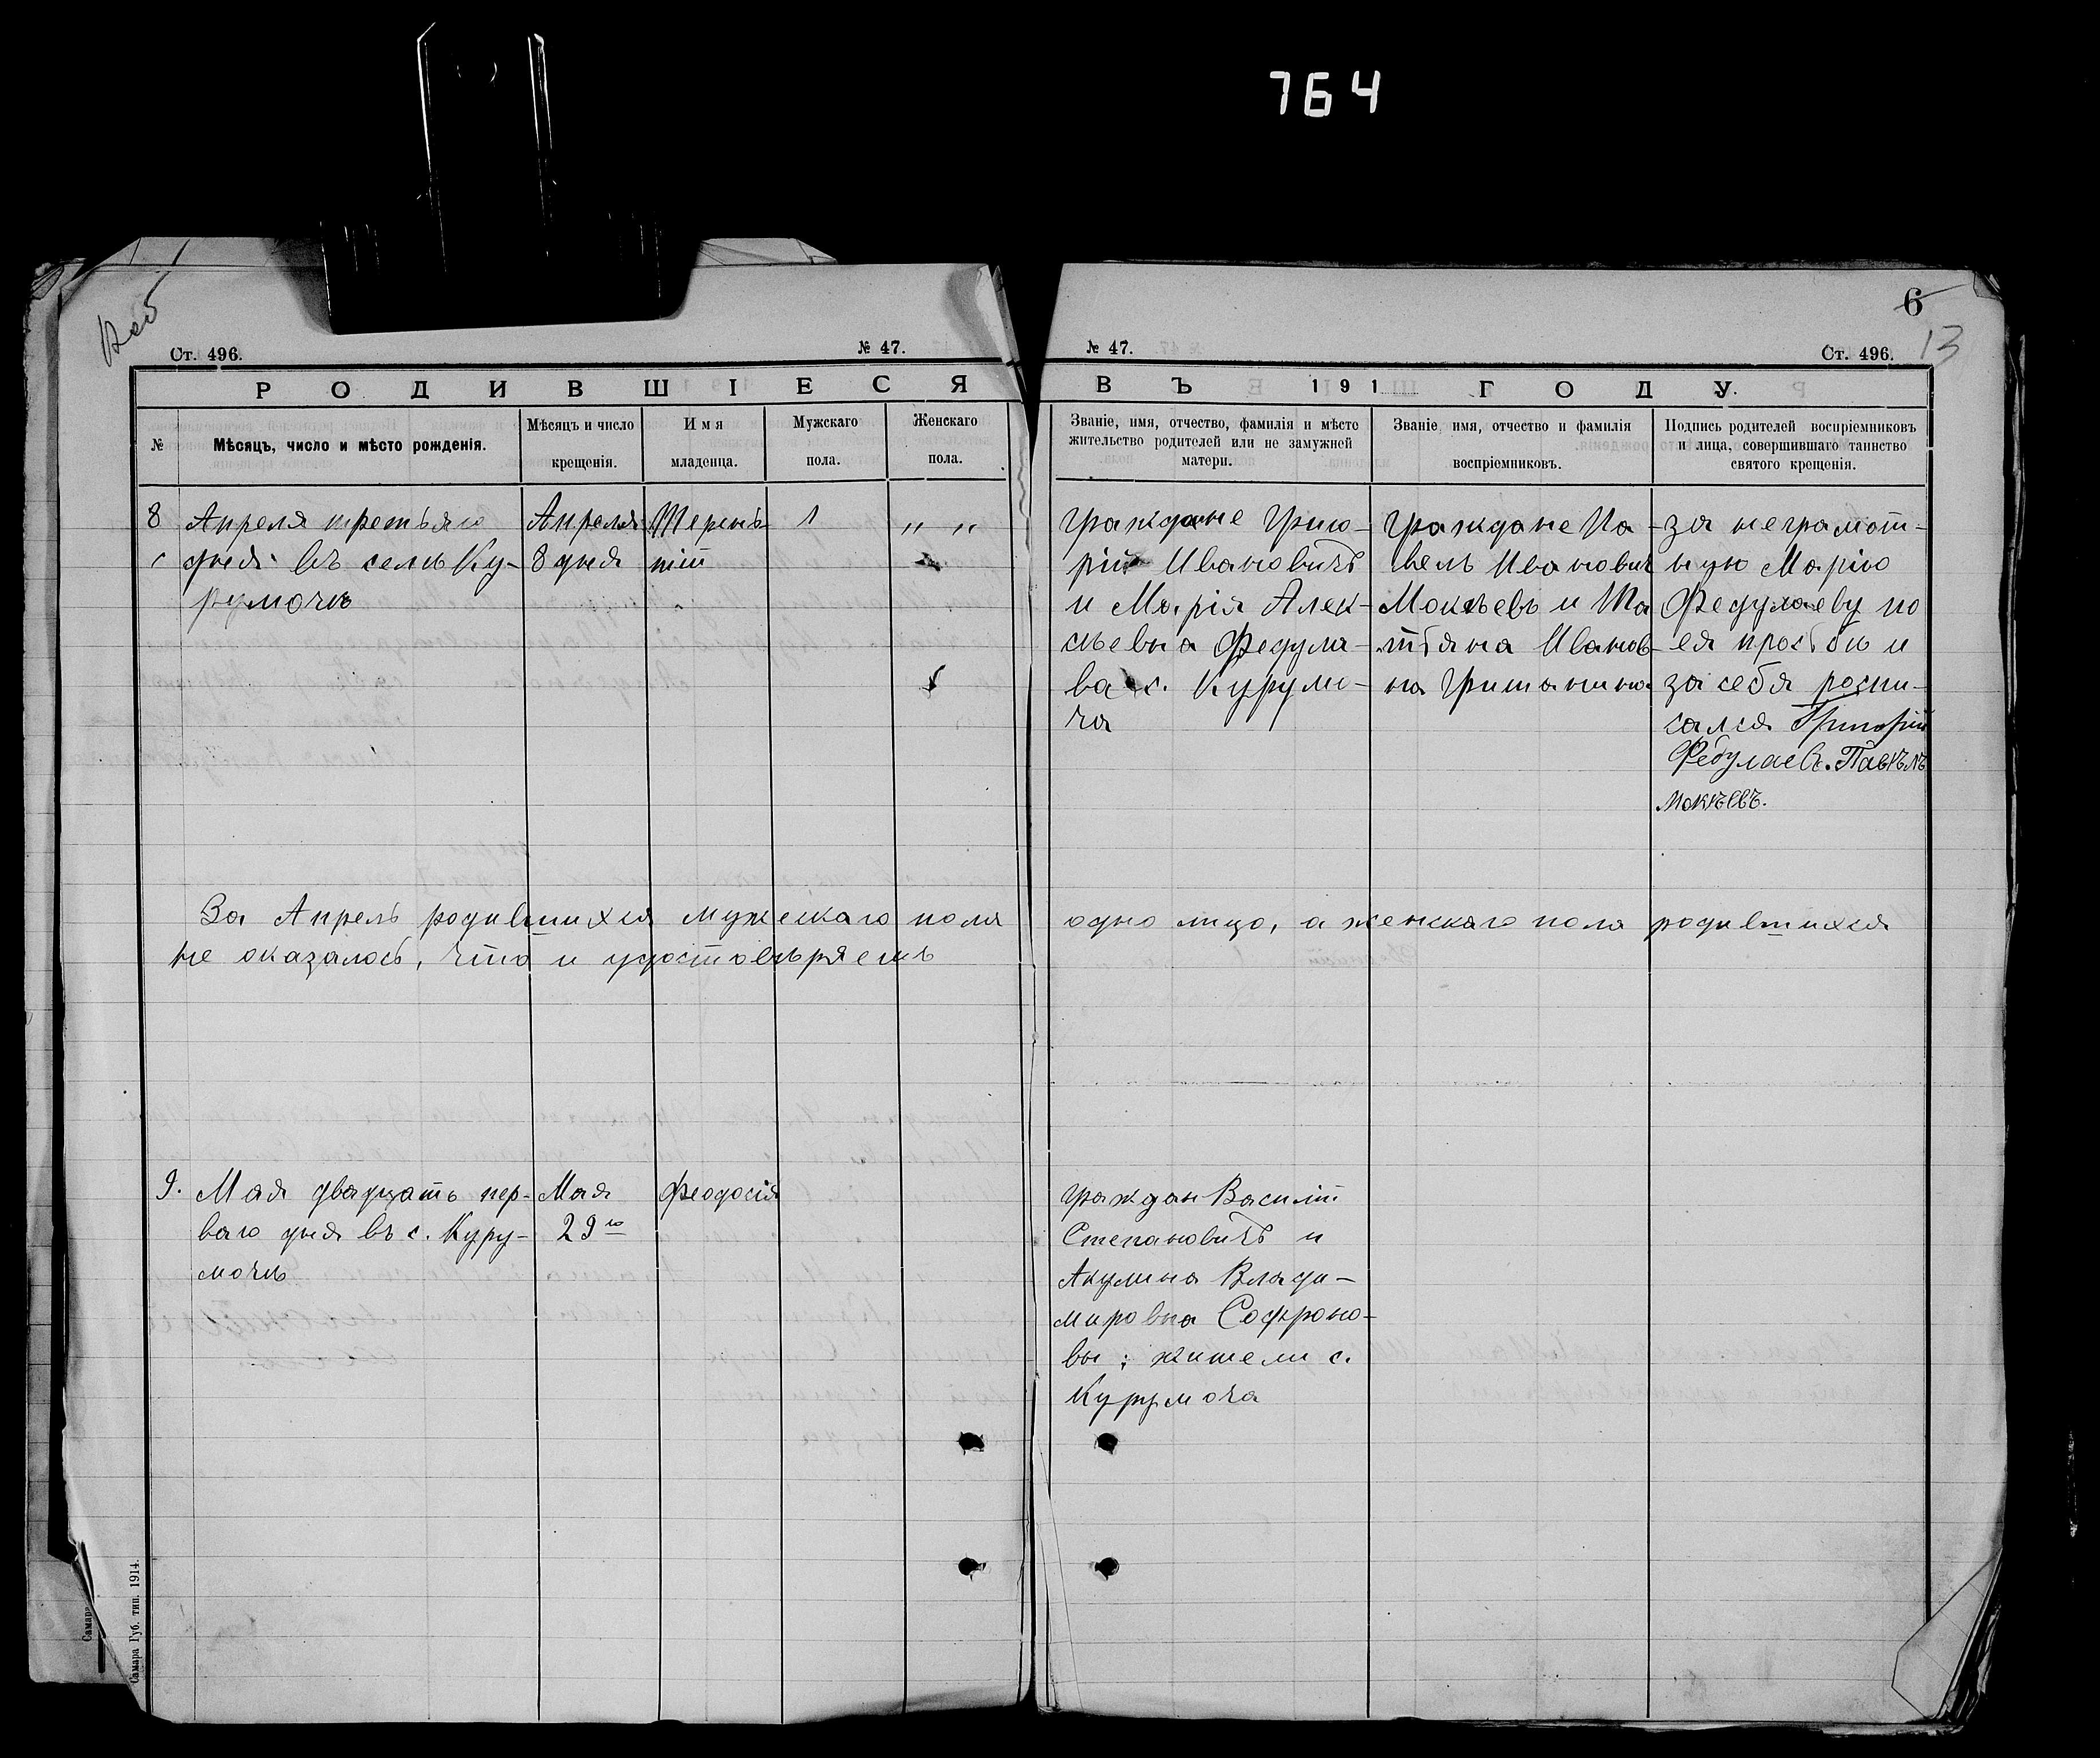 764
6
13
Ст. 496.
№ 47.
№ 47.
Ст. 496.
РОДИВШІЕСЯ
ВЪ 191 ГОДУ.
№
Мѣсяцъ, число и мѣсто рожденія.
Мѣсяцъ и число
крещенія.
Имя
младенца.
Мужскаго
пола.
Женскаго
пола.
Званіе, имя, отчество, фамилія и мѣсто
жительство родителей или не замужней
матери.
Званіе имя, отчество и фамилія
воспріемниковъ.
Подпись родителей воспріемниковъ
и лица, совершившаго таинство
святого крещенія.
8
Апреля третьяго
дня въ селѣ Ку-
румочѣ
Апреля
8 дня
Терен-
тій
1
„ „
Граждане Григо-
рій Ивановичъ
и Марія Алек-
сѣевна Федула-
ва с. Курумо-
ча
Граждане Па-
велъ Ивановичъ
Мокѣевъ и Та-
тьяна Иванов-
на Гришанина
за неграмот-
ную Марію
Федулаеву по
ея просьбѣ и
за себя роспи-
сался Григорій
Федулаевъ. Павѣлъ
Мокѣевъ.
За Апрель родившихся мужескаго пола одно лицо, а женскаго пола родившихся
не оказалось, что и удостовѣряемъ
9.
Мая двадцать пер-
ваго дня въ с. Куру-
мочѣ
Мая
29го
Феодосія
Граждан Василій
Степановичъ и
Акулина Влади-
мировна Софроно-
вы; жители с.
Курумоча
Самара Губ. тип. 1914.
Самара